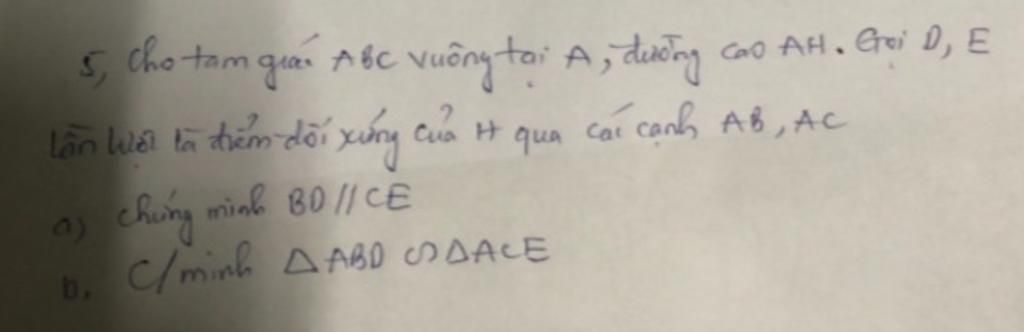 5, Cho tam giác ABC vuông tại A, đường cao AH. Gọi D, E
lần lượt là điểm đối xứng của H qua các cạnh AB, AC
a) Chứng minh BD // CE
b, C/minh △ABD ∽ △ACE